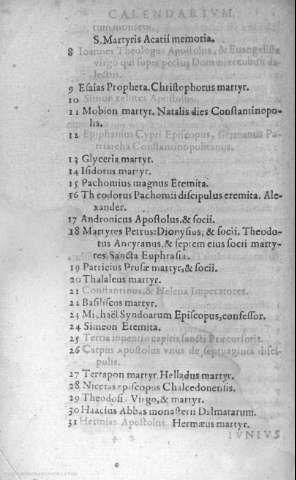 CALENDARIVM.
S. Martyris Acatii memoria.
8 Ioannes Theologus Apostolus, & Euangelista
virgo qui super pectus Domini recubuit di-
lectus.
9 Esaias Propheta. Christophorus martyr.
10 Simon zelotes Apostolus.
11 Mobion martyr. Natalis dies Constantinopo-
lis.
12 Epiphanius Cypri Episcopus, Germanus Pa-
triarcha Constantinopolitanus.
13 Glyceria martyr.
14 Isidorus martyr.
15 Pachomius magnus Eremita.
16 Theodorus Pachomii discipulus eremita. Ale-
xander.
17 Andronicus Apostolus, & socii.
18 Martyres Petrus: Dionysius, & socii. Theodo-
tus Ancyranus, & septem eius socii marty-
res. Sancta Euphrasia.
19 Patricius Prusæ martyr, & socii.
20 Thalaleus martyr.
21 Constantinus, & Helena Imperatores.
22 Basiliscus martyr.
23 Michaël Syndoarum Episcopus, confessor.
24 Simeon Eremita.
25 Tertia inuentio capitis sancti Præcursoris.
26 Carpus Apostolus vnus de septuaginta disci-
pulis.
27 Terrapon martyr. Helladus martyr.
28 Nicetas episcopus Chalcedonensis.
29 Theodosi- Virgo, & martyr.
30 Haacius Abbas monasterii Dalmatarum.
31 Hermias Apostolus Hermæus martyr.
IVNIVS